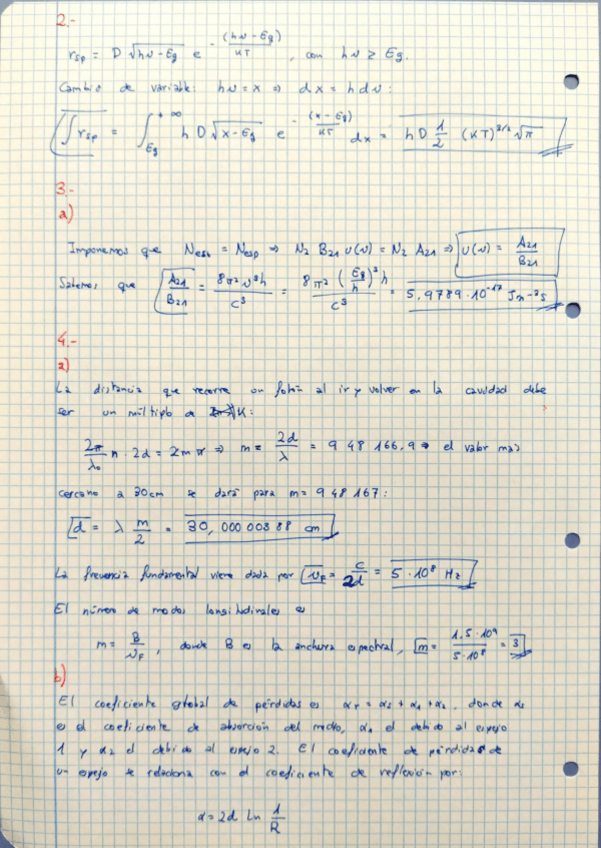 2.-
r_sp = D √(hν - Eg) e^(-(hν - Eg)/KT) , con hν ≥ Eg.
Cambio de variable: hν = x ⇒ dx = h dν :
∫ r_sp = ∫_Eg^(+∞) h D √(x - Eg) e^(-(x - Eg)/KT) dx = h D 1/2 (KT)^(3/2) √π
3.-
a)
Imponemos que N_est = N_esp ⇒ N₂ B₂₁ U(ν) = N₂ A₂₁ ⇒ U(ν) = A₂₁/B₂₁
Sabemos que A₂₁/B₂₁ = 8π² ν³h/c³ = 8π² (Eg/h)³ h/c³ = 5,9789·10⁻¹³ Jm⁻³s
4.-
a)
La distancia que recorre un fotón al ir y volver en la cavidad debe
ser un múltiplo de K:
2π/λ₀ n · 2d = 2mπ ⇒ m = 2d/λ = 948166,9 ⇒ el valor más
cercano a 30cm se dará para m = 948167 :
d = λ m/2 = 30,00000388 cm
La frecuencia fundamental viene dada por ν_F = c/2d = 5·10⁸ Hz
El número de modos longitudinales es
m = B/ν_F , donde B es la anchura espectral, m = 1,5·10⁹/5·10⁸ = 3
b)
El coeficiente global de pérdidas es α_T = α_s + α₁ + α₂, donde α_s
es el coeficiente de absorción del medio, α₁ el debido al espejo
1 y α₂ el debido al espejo 2. El coeficiente de pérdidas de
un espejo se relaciona con el coeficiente de reflexión por:
α = 2d ln 1/R